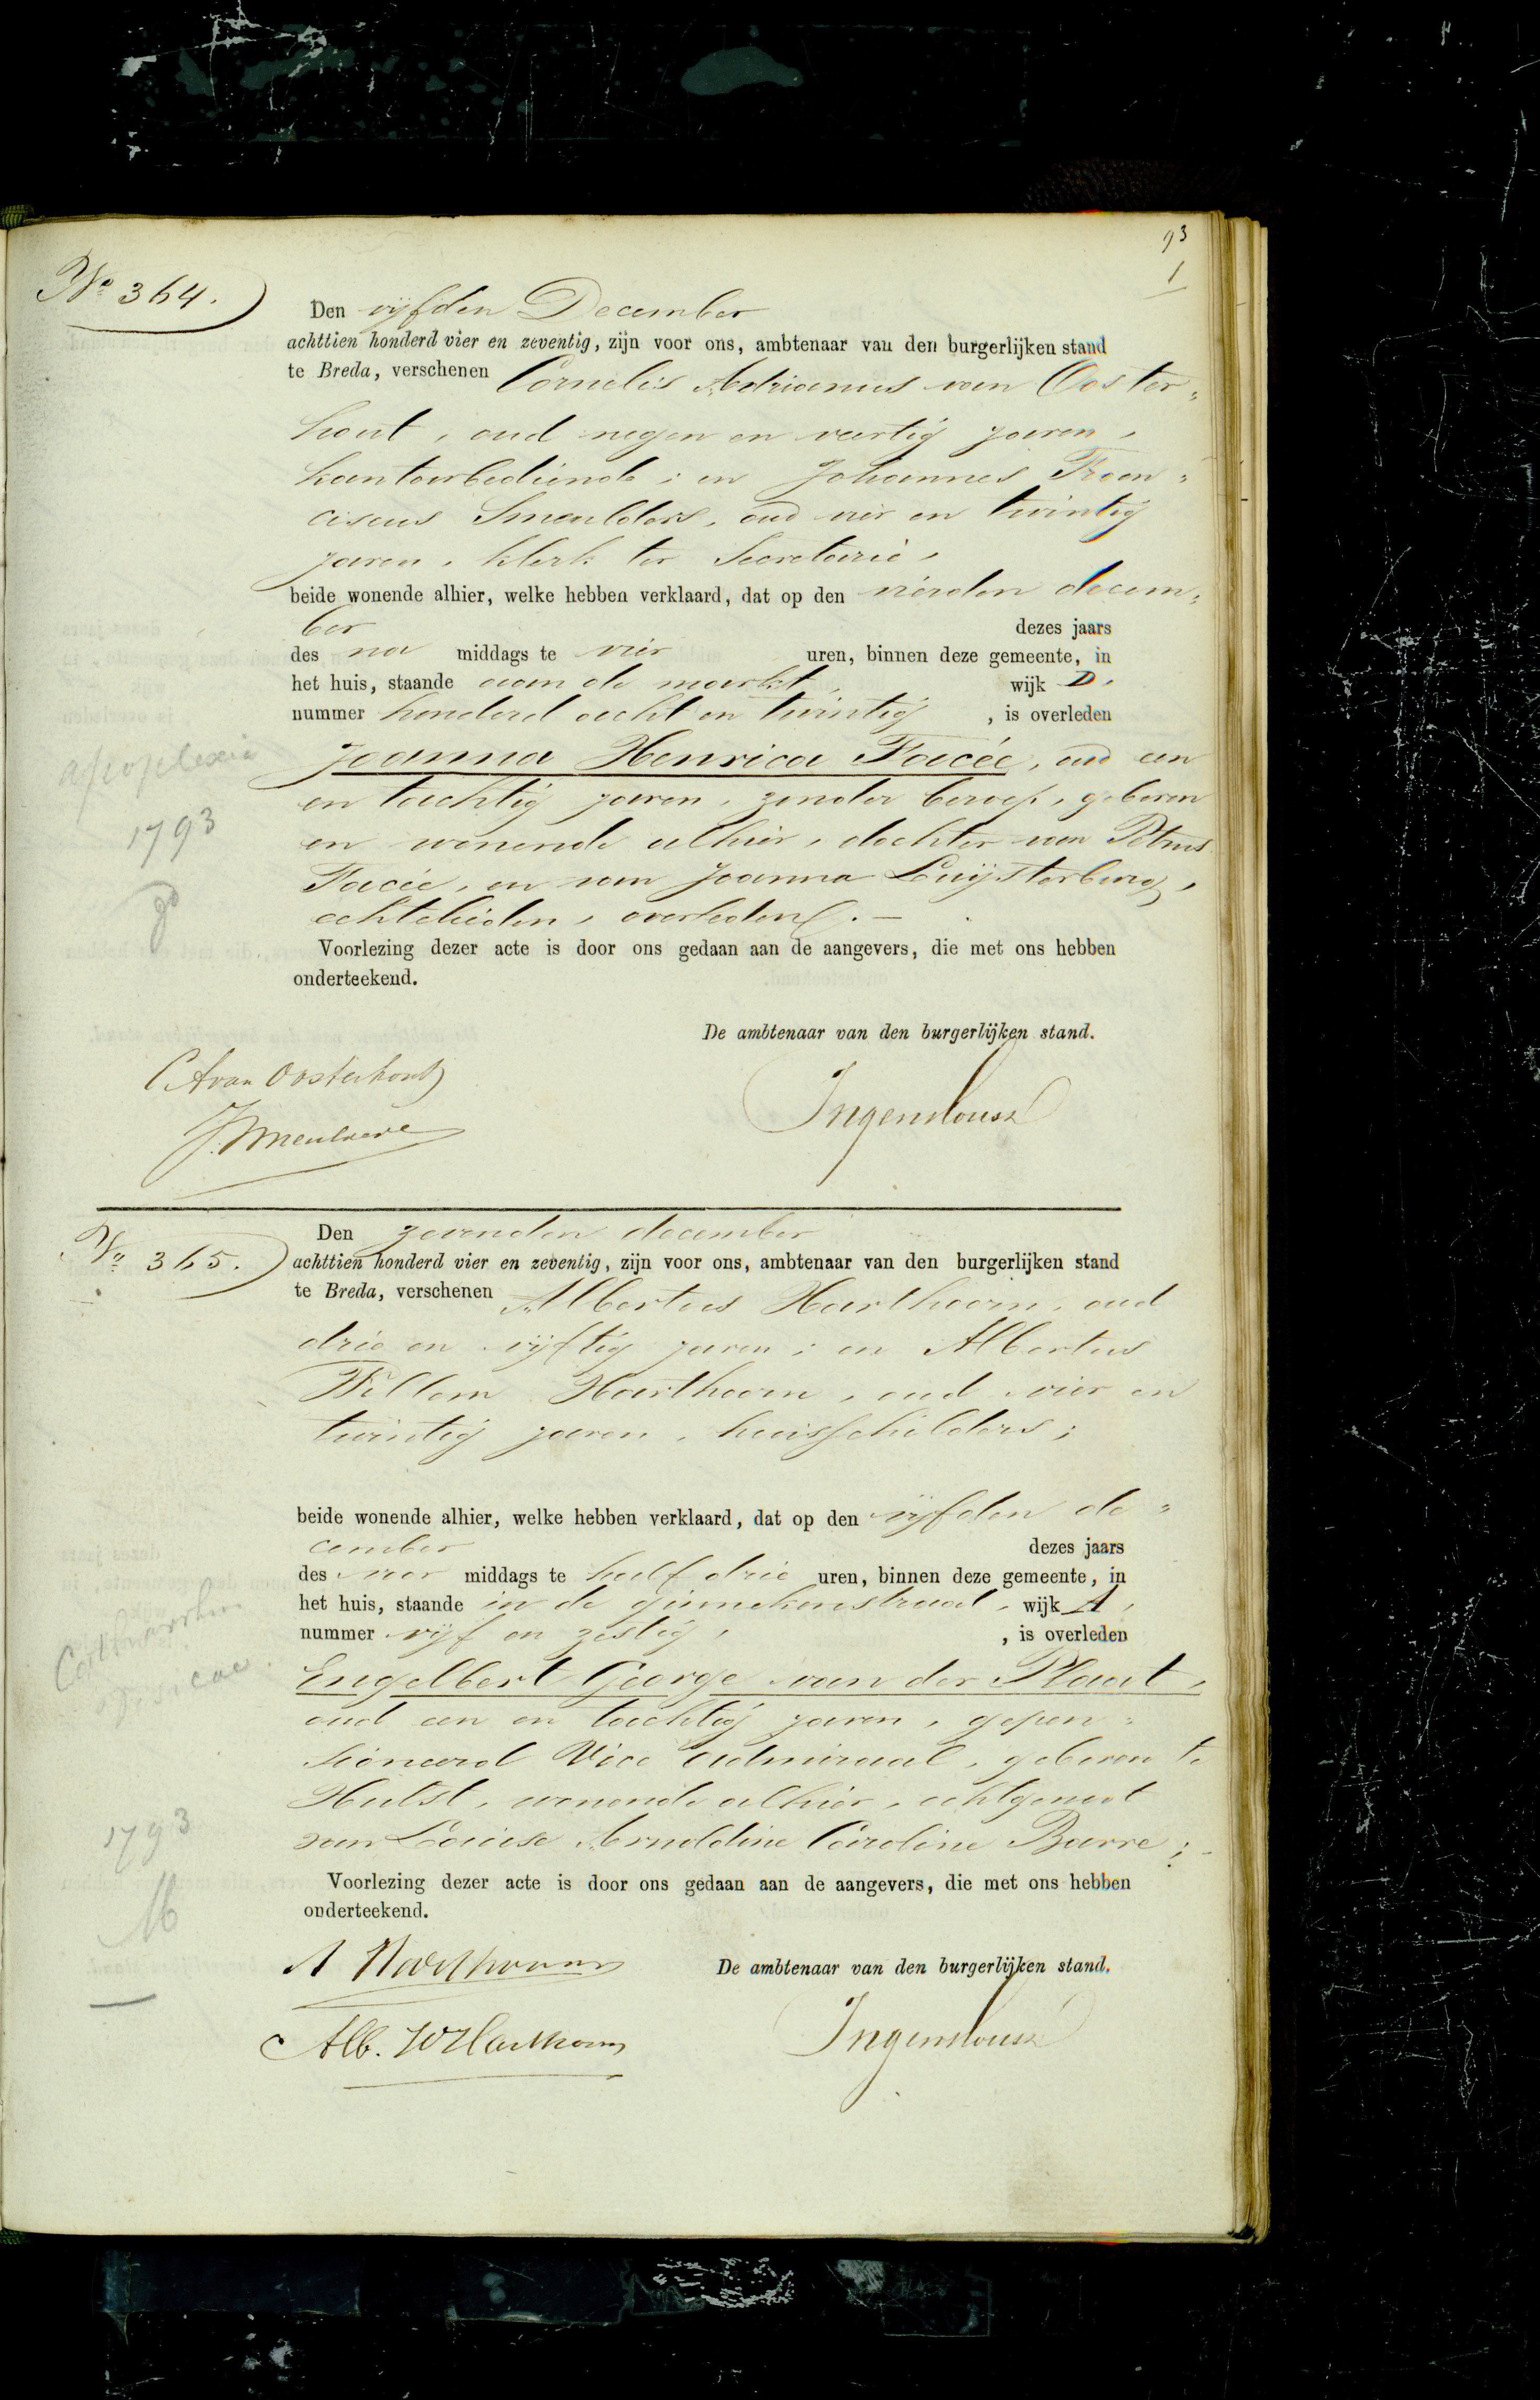 93
1
No 364.
Den vijfden December
achttien honderd vier en zeventig, zijn voor ons, ambtenaar van den burgerlijken stand
te Breda, verschenen Cornelis Adrianus van Ooster„
hout, oud negen en veertig jaren,
kantoorbediende; en Johannes Fran„
ciscus Smeulders, oud vier en twintig
jaren, klerk ter Secretarie,
beide wonende alhier, welke hebben verklaard, dat op den vierden decem„
ber dezes jaars
des na middags te vier uren, binnen deze gemeente, in
het huis, staande aan de markt, wijk D,
nummer honderd acht en twintig, is overleden
Joanna Henrica Facée, oud een
en tachtig jaren, zonder beroep, geboren
en wonende alhier, dochter van Petrus
Facée, en van Joanna Luijsterburg,
echtelieden, overleden. —
apoplexia
1793
Voorlezing dezer acte is door ons gedaan aan de aangevers, die met ons hebben
onderteekend.
De ambtenaar van den burgerlijken stand.
C A van Oosterhout
J. Smeulders
Ingenhousz
No 365.
Den zevenden december
achttien honderd vier en zeventig, zijn voor ons, ambtenaar van den burgerlijken stand
te Breda, verschenen Albertus Harthoorn, oud
drie en vijftig jaren; en Albertus
Willem Harthoorn, oud vier en
twintig jaren, huisschilders;
beide wonende alhier, welke hebben verklaard, dat op den vijfden de„
cember dezes jaars
des voor middags te half drie uren, binnen deze gemeente, in
het huis, staande in de ginnekenstraat, wijk A,
nummer vijf en zestig, , is overleden
Engelbert George van der Plaat,
oud een en tachtig jaren, gepen„
sioneerd Vice admiraal, geboren te
Hulst, wonende alhier, echtgenoot
van Louise Arnoldine Caroline Barre;
1793
M
Voorlezing dezer acte is door ons gedaan aan de aangevers, die met ons hebben
onderteekend.
De ambtenaar van den burgerlijken stand.
A Harthoorn
Alb. W Harthoorn
Ingenhousz